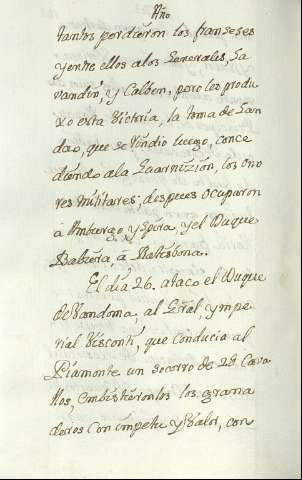 Año
tantos perdieron los franseses
y entre ellos a los Generales, La
vandin, y Calben, pero les produ
xo esta Victoria, la toma de Lan
dao, que se rindio luego, conce
diendo a la Guarnizión, los ono
res militares, despues ocuparon
à Omburgo y Spira, y el Duque
Babiera à Ratisbona.
El dia 26. ataco el Duque
de Vandoma, al Gral, ympe
rial Visconti, que conducia al
Piamonte un socorro de 2[?] Cava
llos, embistieronlos los grana
deros con impetu y Valor, con